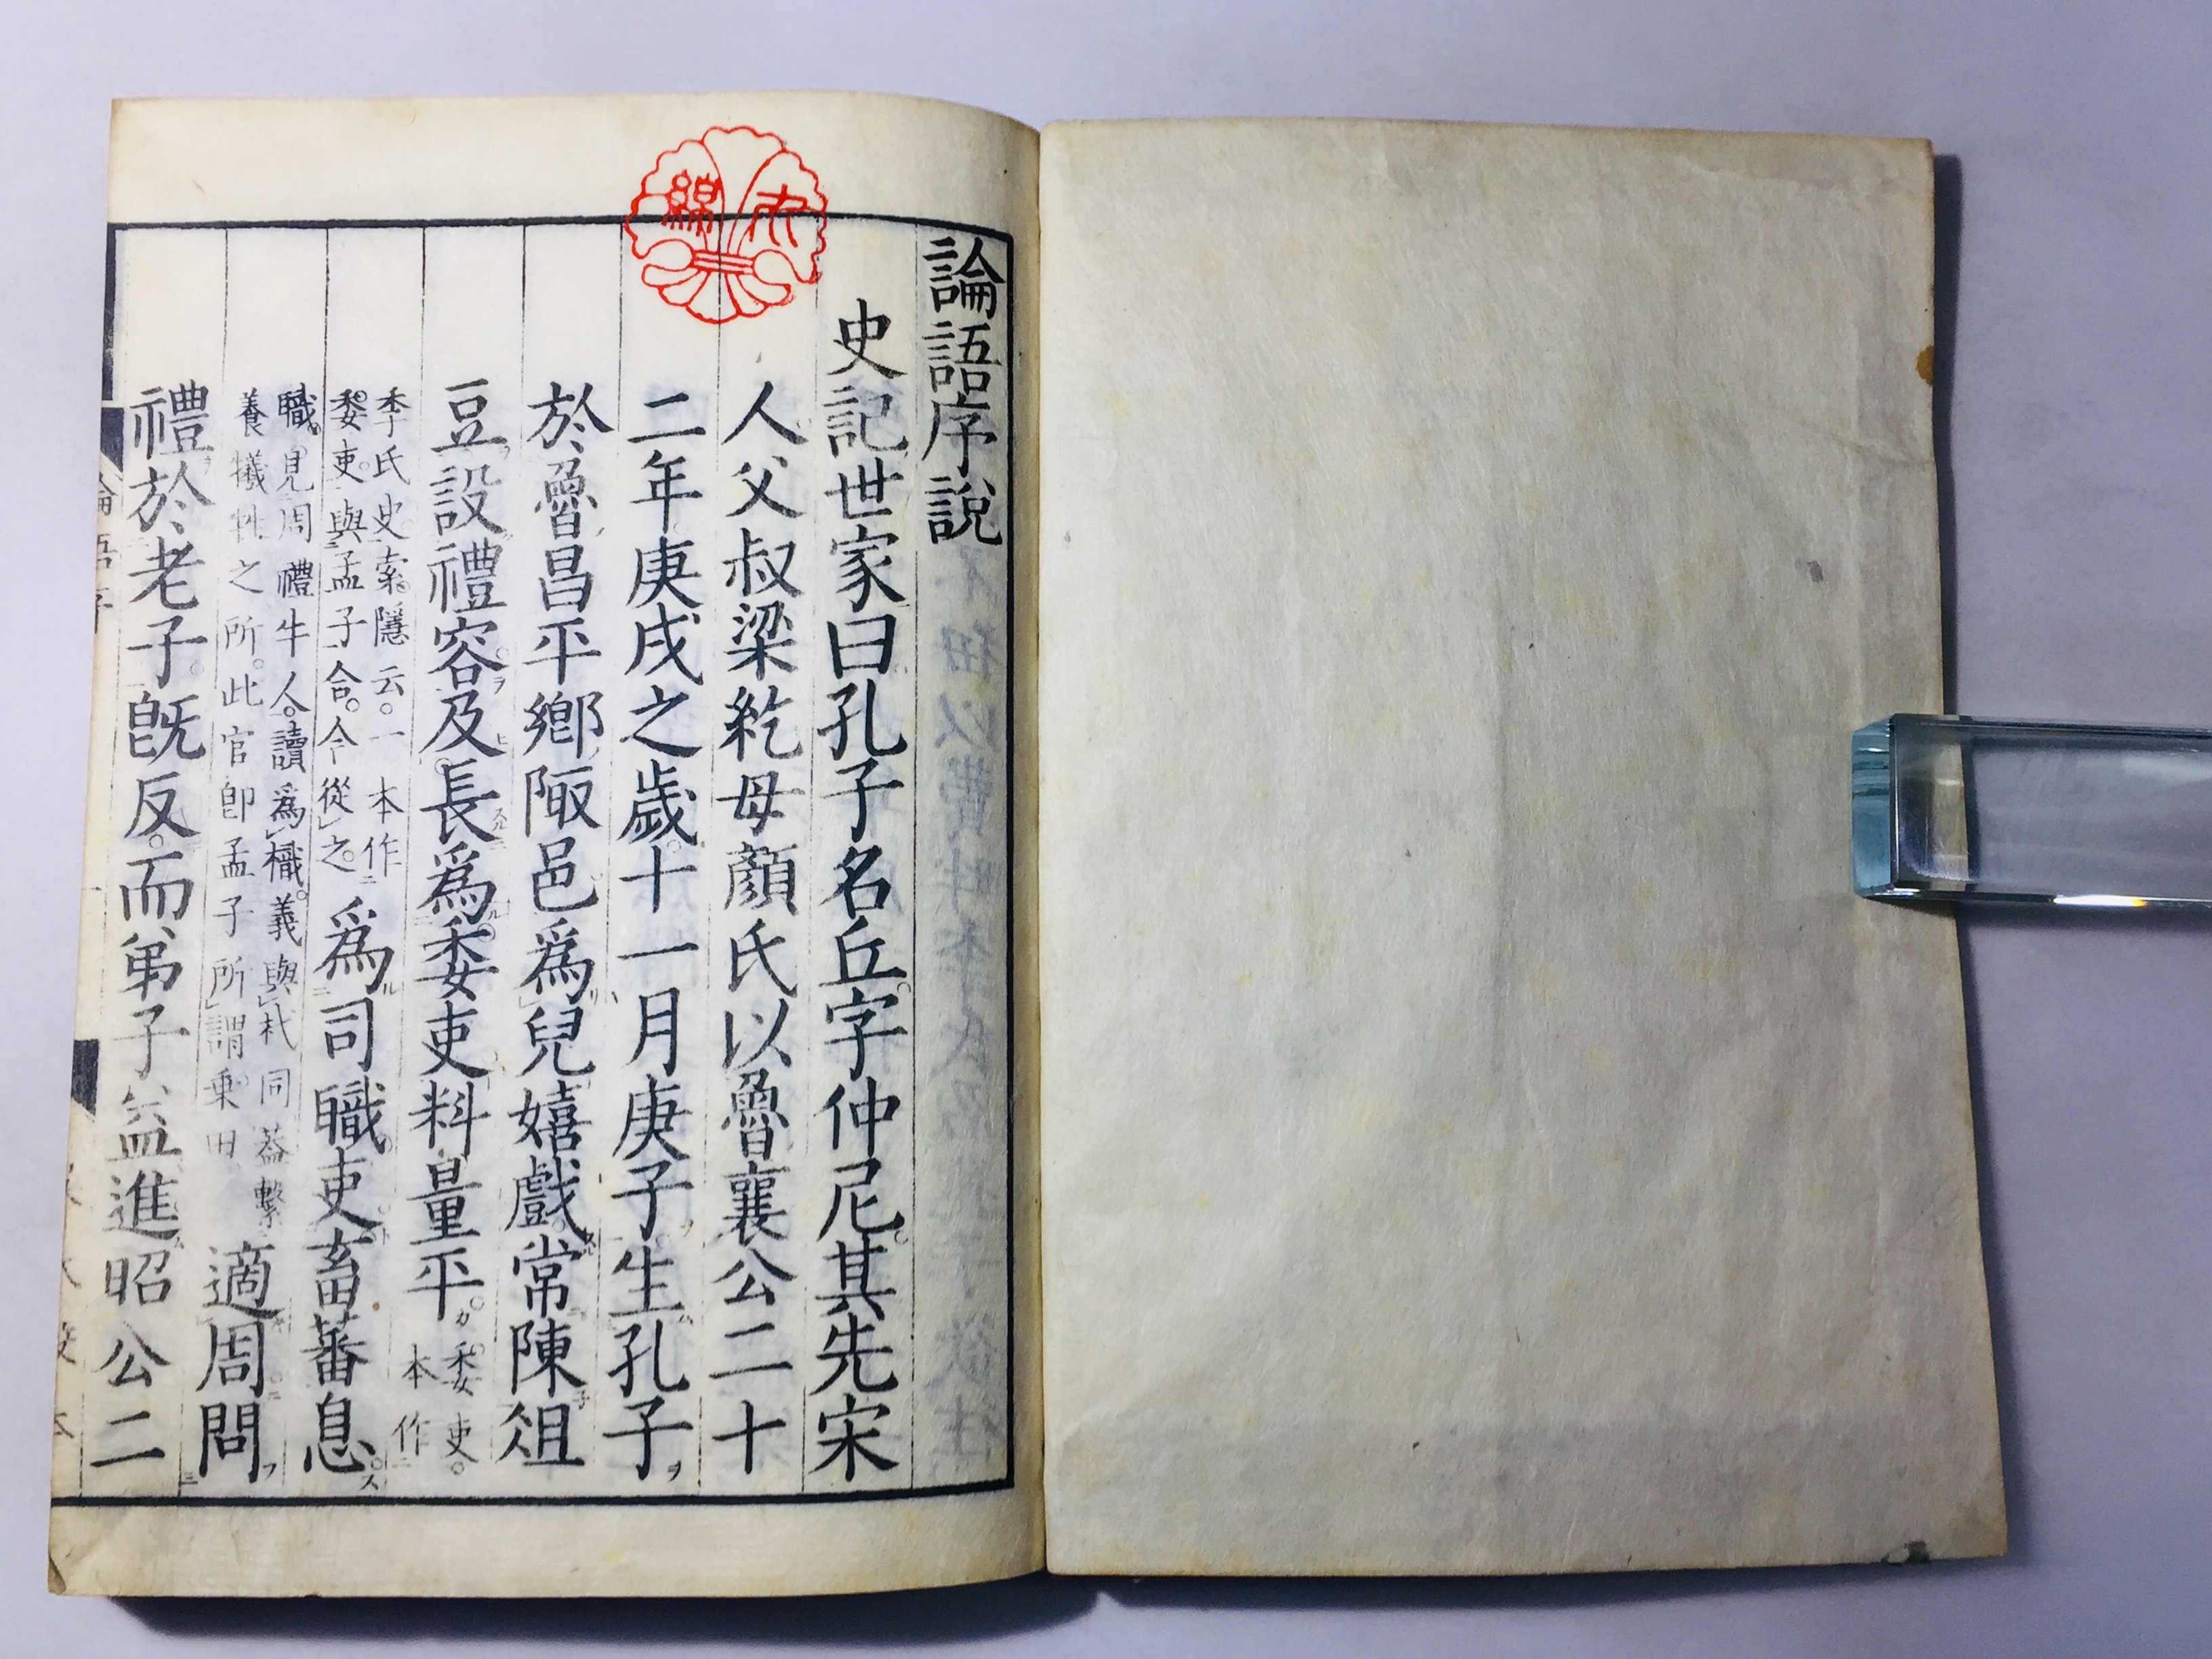 論語序說
史記世家曰孔子名丘字仲尼其先宋
人父叔梁紇母顏氏以魯襄公二十
二年庚戌之歲十一月庚子生孔子
於魯昌平鄉陬邑爲兒嬉戲常陳俎
豆設禮容及長爲委吏料量平委吏
本作
季氏史索隱云一本作
委吏與孟子合今從之
爲司職吏畜蕃息
職見周禮牛人讀爲樴義與杙同蓋繫
養犧牲之所此官卽孟子所謂乘田
適周問
禮於老子旣反而弟子益進昭公二
綿